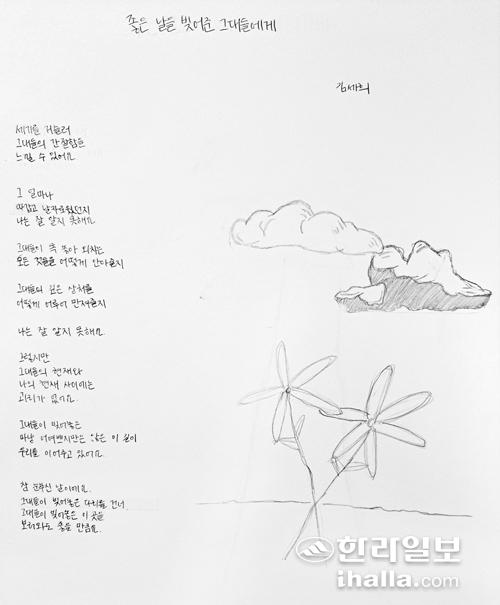 좋은 날을 빚어준 그대들에게
김세희
세기를 거슬러
그대들의 간절함을
느낄 수 있어요
그 얼마나
따갑고 날카로웠던지
나는 잘 알지 못해요
그대들이 목 놓아 외치는
모든 것들을 어떻게 안아줄지
그대들의 깊은 상처를
어떻게 어루어 만져줄지
나는 잘 알지 못해요
그렇지만
그대들의 현재와
나의 현재 사이에는
괴리가 없어요
그대들이 빚어놓은
마냥 어여쁘지만은 않은 이 섬이
우리를 이어주고 있어요
참 눈부신 날이에요
그대들이 빚어놓은 다리를 건너
그대들이 빚어놓은 이 곳을
보러와도 좋을 만큼요
한라일보
ihalla.com